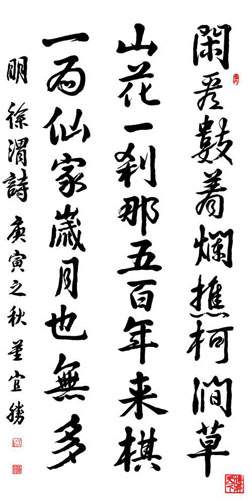 閑看數着爛樵柯澗草
山花一刹那五百年来棋
一局仙家歲月也無多
明 徐渭詩 庚寅之秋 董宜勝